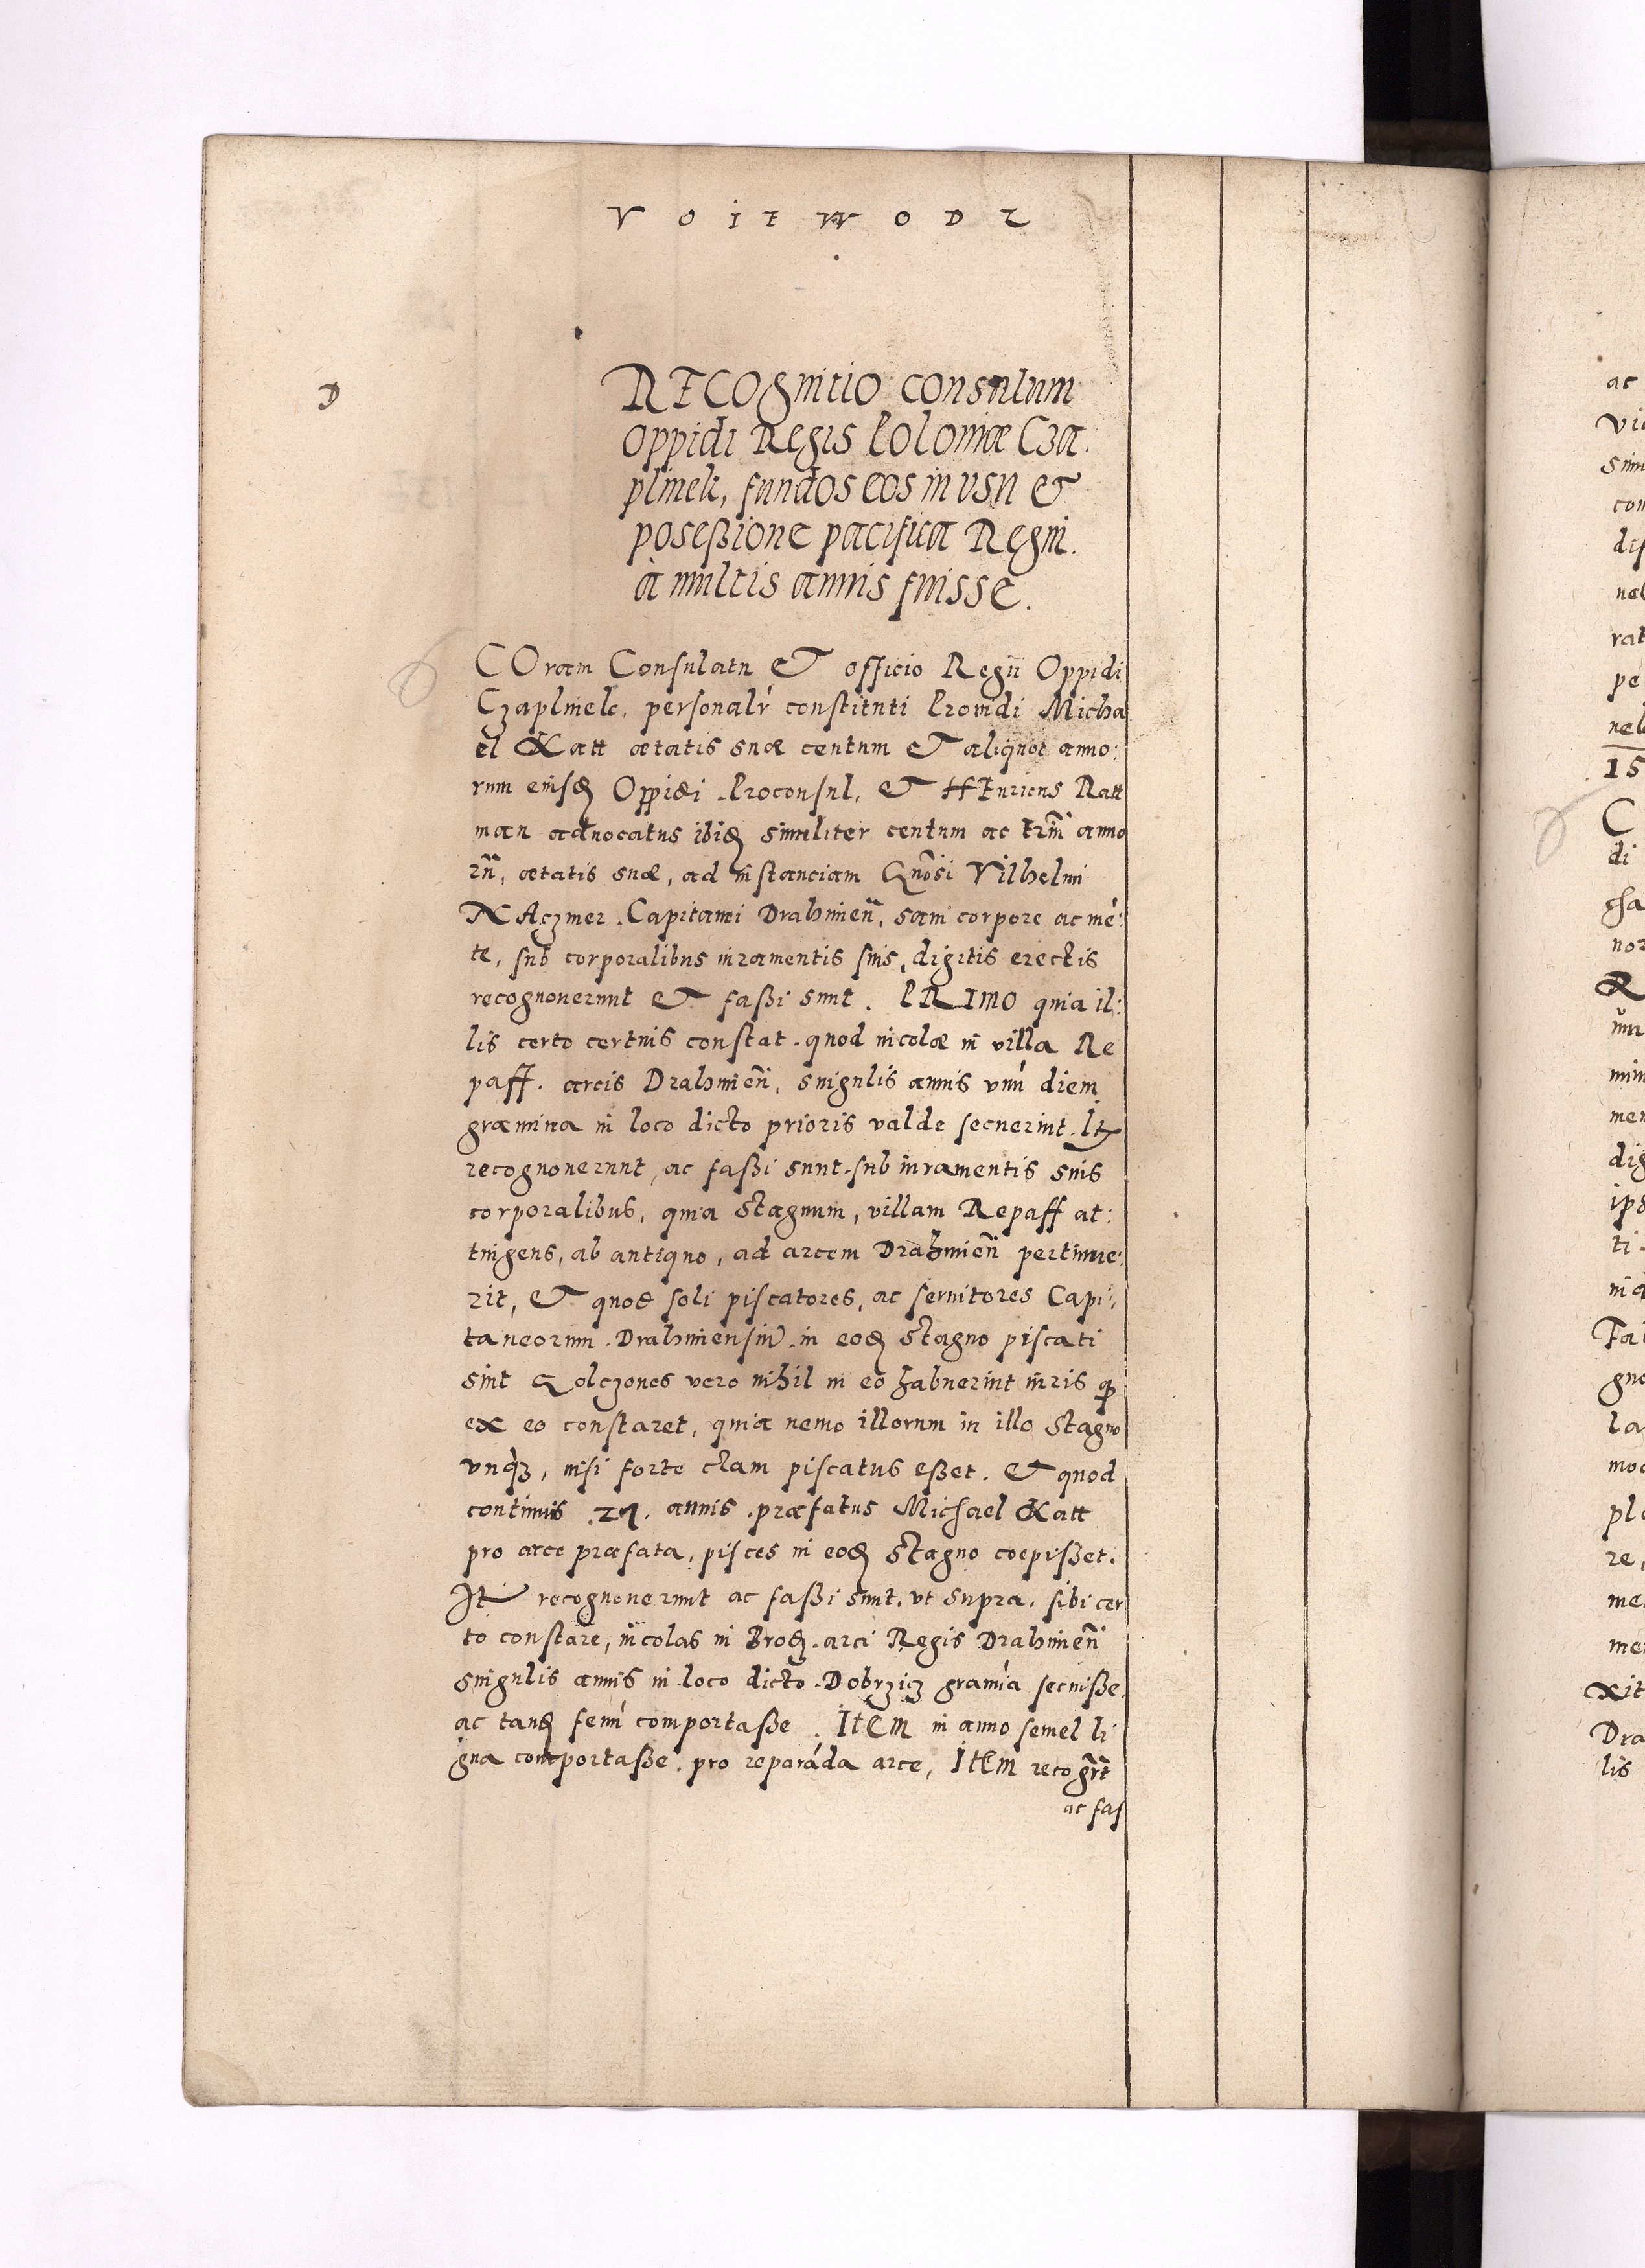 VOIEWODZ
D
RECOgnitio consulum
oppidi Regis Poloniæ Cza:
plinek, fundos eos in vsu et
poseßione pacifica Regni.
à multis annis fuisse.
COram Consulatu et officio Regii Oppidi
Czaplinek, personalr̃ constituti Prouidi Micha
el Katt ætatis suæ centum et aliquot anno:
rum eiusđ Oppidi Proconsul, et HEnricus Ratt
man aduocatus ibiđ similiter centum ac triũ anno
rũ, ætatis suæ, ad instanciam Gnõsi Vilhelmi
NAczmer Capitanei Drahimeñ, sani corpore ac mé:
te, sub corporalibus iuramentis suis, digitis erectis
recognouerunt et faßi sunt. PRIMO quia il:
lis certo certius constat quod incolæ in villa Re
paff. arcis Drahimeñ, singulis annis vnũ diem
gramina in loco dicto prioris valde secuerint. It
recognouerunt, ac faßi sunt sub iuramentis suis
corporalibus, quia stagnum, villam Repaff at:
tingens, ab antiquo, ad arcem Drahimeñ pertinue:
rit, et quod soli piscatores, ac seruitores Capi:
taneorum Drahimensiũ in eođ stagno piscati
sint Golczones vero nihil in eo habuerint iuris ꝙ
ex eo constaret, quia nemo illorum in illo stagno
vnq̃ȝ, nisi forte clam piscatus eßet. et quod
continuis .27. annis præfatus Michael Katt
pro arce præfata, pisces in eođ stagno coepißet.
It recognouerunt ac faßi sunt, vt supra, sibi cer
to constare, incolas in Brođ arci Regis Drahimeñ
singulis annis in loco dicto Dobrzicz gramĩa secuiße,
ac tanđ fenũ comportaße. ITEM in anno semel li
gna comportaße pro reparáda arce, ITEM recogrt̃
ac fas